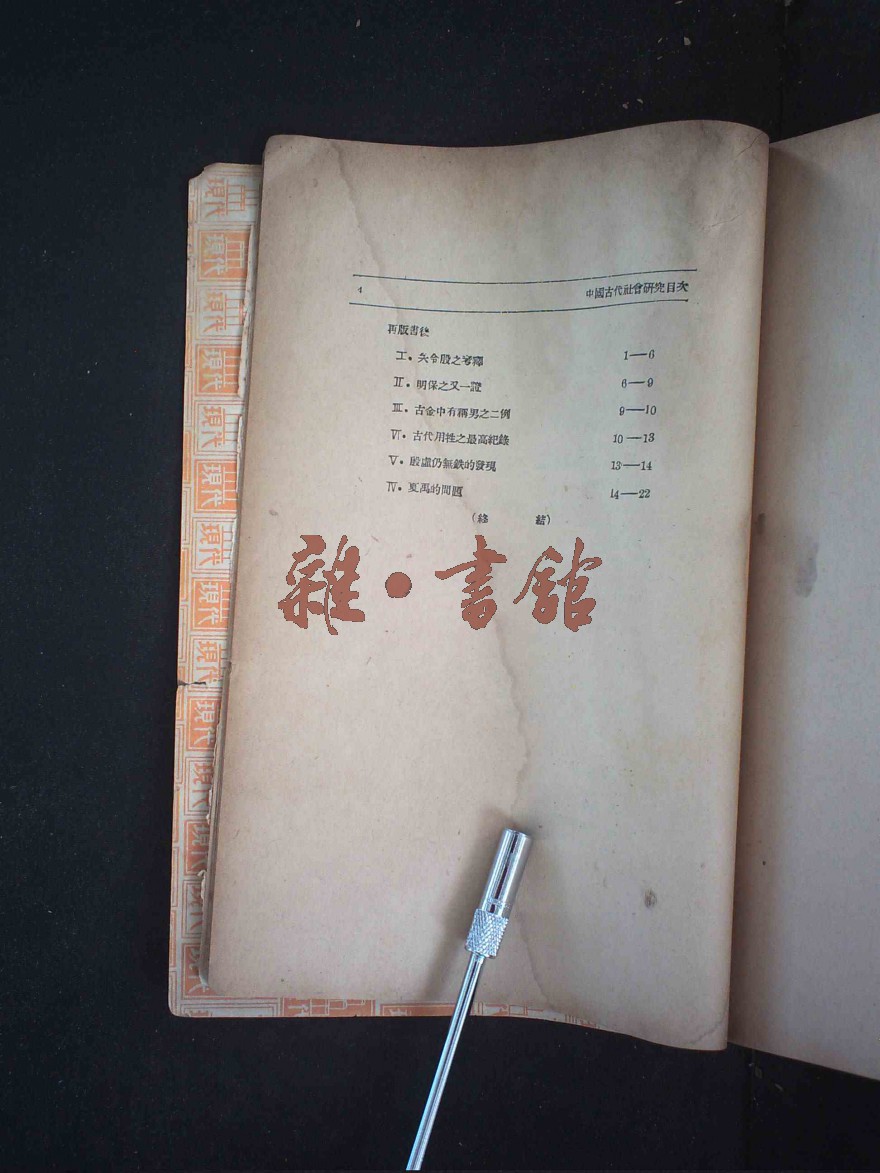 4 中國古代社會研究目次
再版書後
I. 矢令殷之考釋 1—6
II. 明保之又一證 6—9
III. 古金中有稱男之二例 9—10
VI. 古代用牲之最高紀錄 10—13
V. 殷虛仍無鉄的發現 13—14
IV. 夏禹的問題 14—22
(終 結)
雜·書館
現代
現代
現代
現代
現代
現代
現代
現代
現代
現代
現代
現代
現代
現代